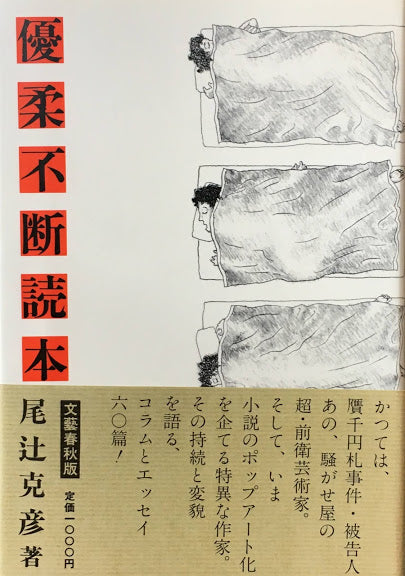 優柔不断読本
尾辻克彦著
文藝春秋版
定価一〇〇〇円
かつては、
贋千円札事件・被告人
あの 騒がせ屋の
超・前衛芸術家。
そして、いま
小説のポップアート化
を企てる特異な作家。
その持続と変貌
を語る、
コラムとエッセイ
六〇篇！